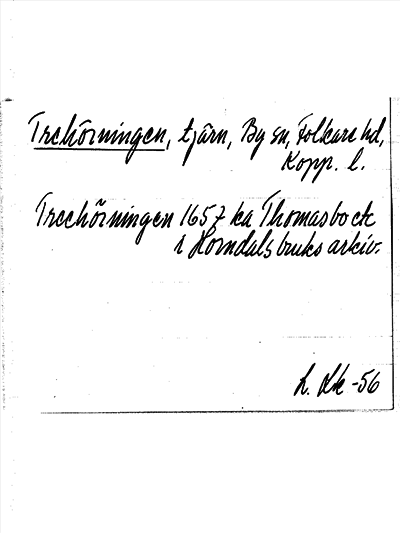 Trehörningen, tjärn, By sn, Folkare hd,
Kopp. l.
Treehörningen 1657 ka Thomasbo etc
i Horndals bruks arkiv.
-56